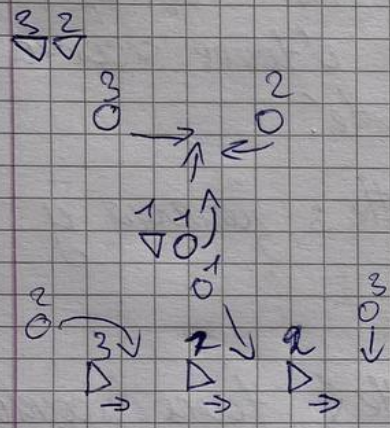 3 2
3 2
1 1
1
2 3
3 1 2